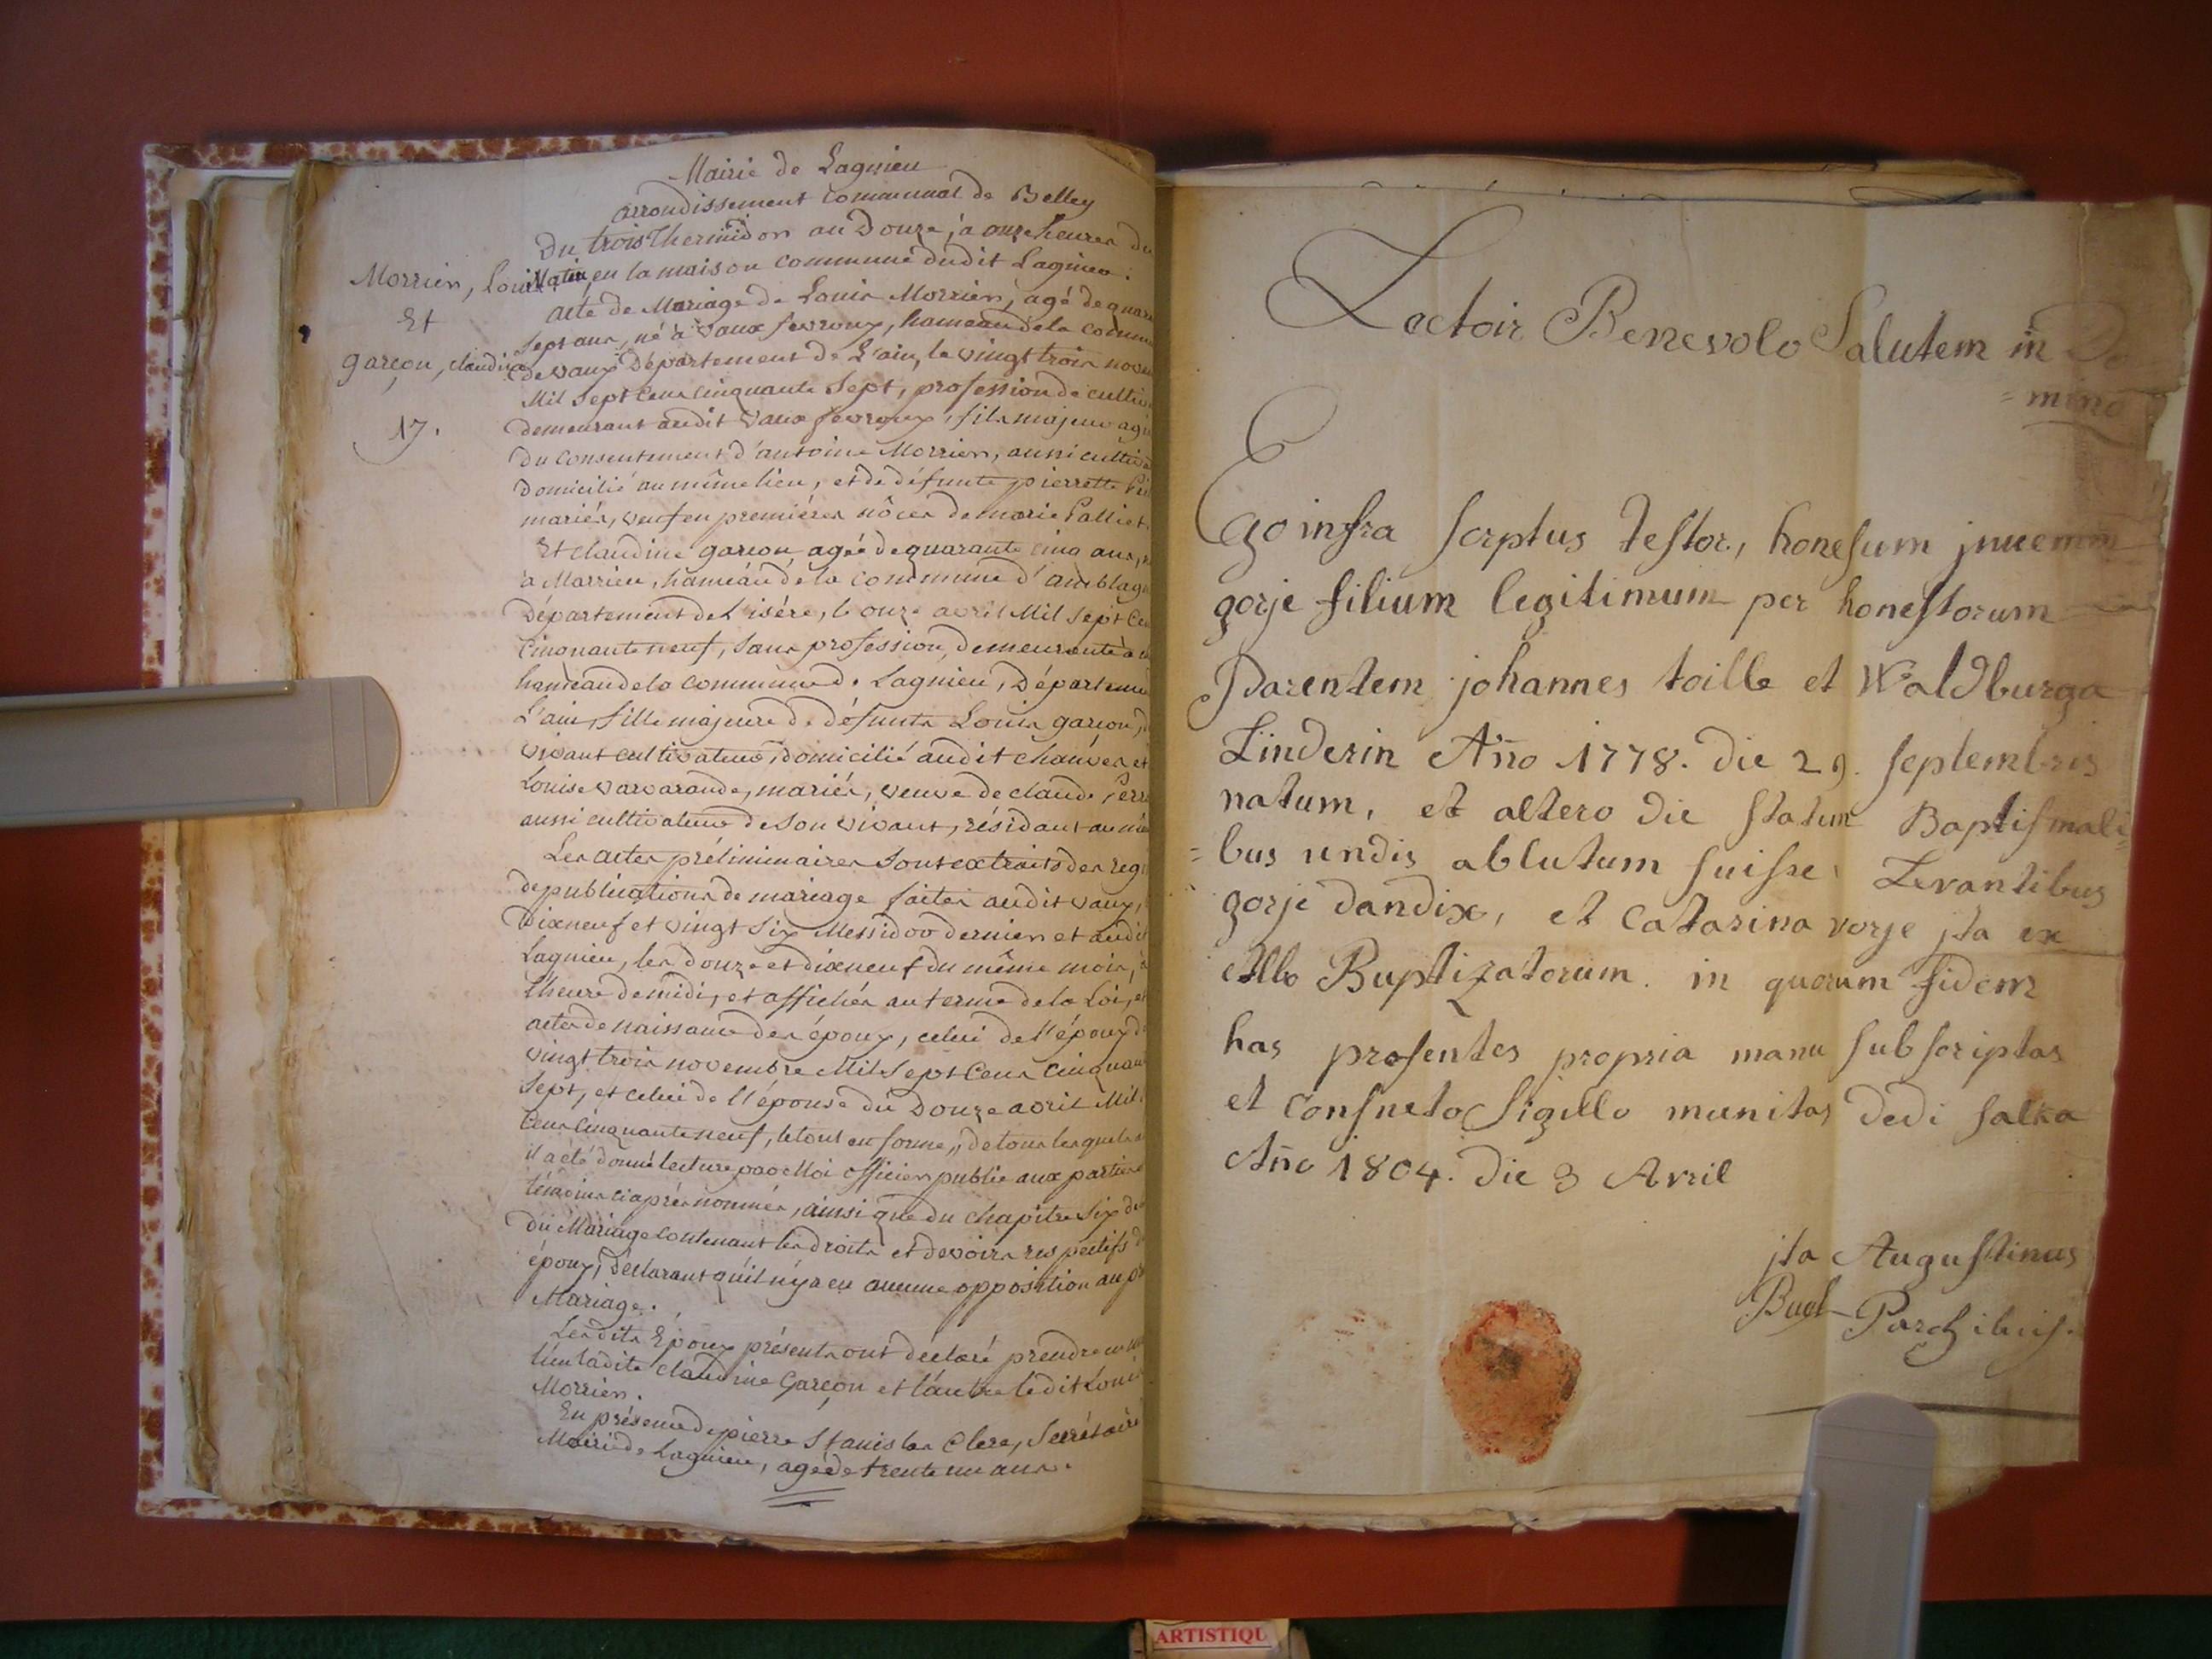 Mairie de Lagnieu
arrondissement Communal de Belley
Du trois Thermidor an Douze, à onze heures du
Matin, en la maison Commune dudit Lagnieu.
Morrier, Louis
Et
garçon, claudine
17.
acte de Mariage de Louis Morrier, agé de quara
Sept ans, né à Vaux fevroux, hameau de la Commu
de Vaux Département de L'ain, le vingt trois nove
Mil Sept Cens Cinquante Sept, profession de cultiva
demeurant audit Vaux fevroux, fils majeur agis
du Consentement d'antoine Morrier, aussi cultiva
Domicilié au même lieu, et de défunte pierrette
mariés, veuf en premières nôces de marie Palliet.
Et Claudine garçon agée de quarante cinq ans,
à Marrieu, hameau de la Commune d'amblagn
Département de L'isére, le onze avril Mil Sept Cen
Cinquante neuf, Sans profession, demeurante à
hameau de la Commune de Lagnieu, Départeme
L'ain, fille majeure de défunts Louis garçon, d
vivant cultivateur, domicilié audit chanves et
Louise varvarande, mariés, veuve de claude Perr
aussi cultivateur de Son vivant, résidant au mê
Les actes préliminaires Sont extraits des reg
de publications de mariage faites audit vaux,
Dix neuf et vingt Six Messidor dernier et audit
Lagnieu, les douze et dix neuf du même mois, à
l'heure de midi, et affichés au terme de la Loi, et
actes de naissance des époux, celui de l'époux d
vingt trois novembre Mil Sept Cens Cinquan
Sept, et celui de l'épouse du Douze avril Mil
Cens Cinquante neuf, le tout en forme, de tous lesquels
il a été donné lecture par Moi officier public aux parties
témoins ci après nommés, ainsi que du chapitre Six de
du Mariage contenant les droits et devoirs respectifs d
époux, déclarant qu'il n'y a eu aucune opposition au pr
Mariage.
Lesdits Epoux présents ont déclaré prendre en
l'un ladite Claudine Garçon et l'autre ledit Loui
Morrier.
En présence de pierre Stanislas Clerc, Secrétaire
Mairie de Lagnieu, agé de trente un ans.
Lectoir Benevolo Salutem in Do
= mino
Ego infra scrptus testor, honesum jnuemm
gorje filium legitimum per honestorum
Parentem johannes toille et Waldburga
Linderin Año 1778. die 29. septembris
natum, et altero die statim Baptismali=
= bus undis ablutum fuisse, Levantibus
gorje dandix, et Catarina vorje jta ex
Albo Baptizatorum. in quorum fidem
has prasentes propria manu subscriptas
et Consueto Sigillo munitas dedi salva
Año 1804. die 3 Avril
jta Augustinus
Buol